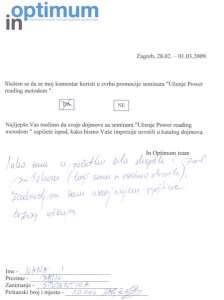 in optimum
Zagreb, 28.02. – 01.03.2009.
Slažem se da se moj komentar koristi u svrhu promocije seminara "Učenje Power
reading metodom ".
DA
NE
Najljepše Vas molimo da svoje dojmove sa seminara "Učenje Power reading
metodom " zapišete ispod, kako bismo Vaše impresije uvrstili u katalog dojmova.
In Optimum team
Iako sam u početku bila
zadovoljna sam
brzog učenja
Ime - IVANA
Prezime -
Zanimanje - STUDENTICA
Poštanski broj i mjesto -